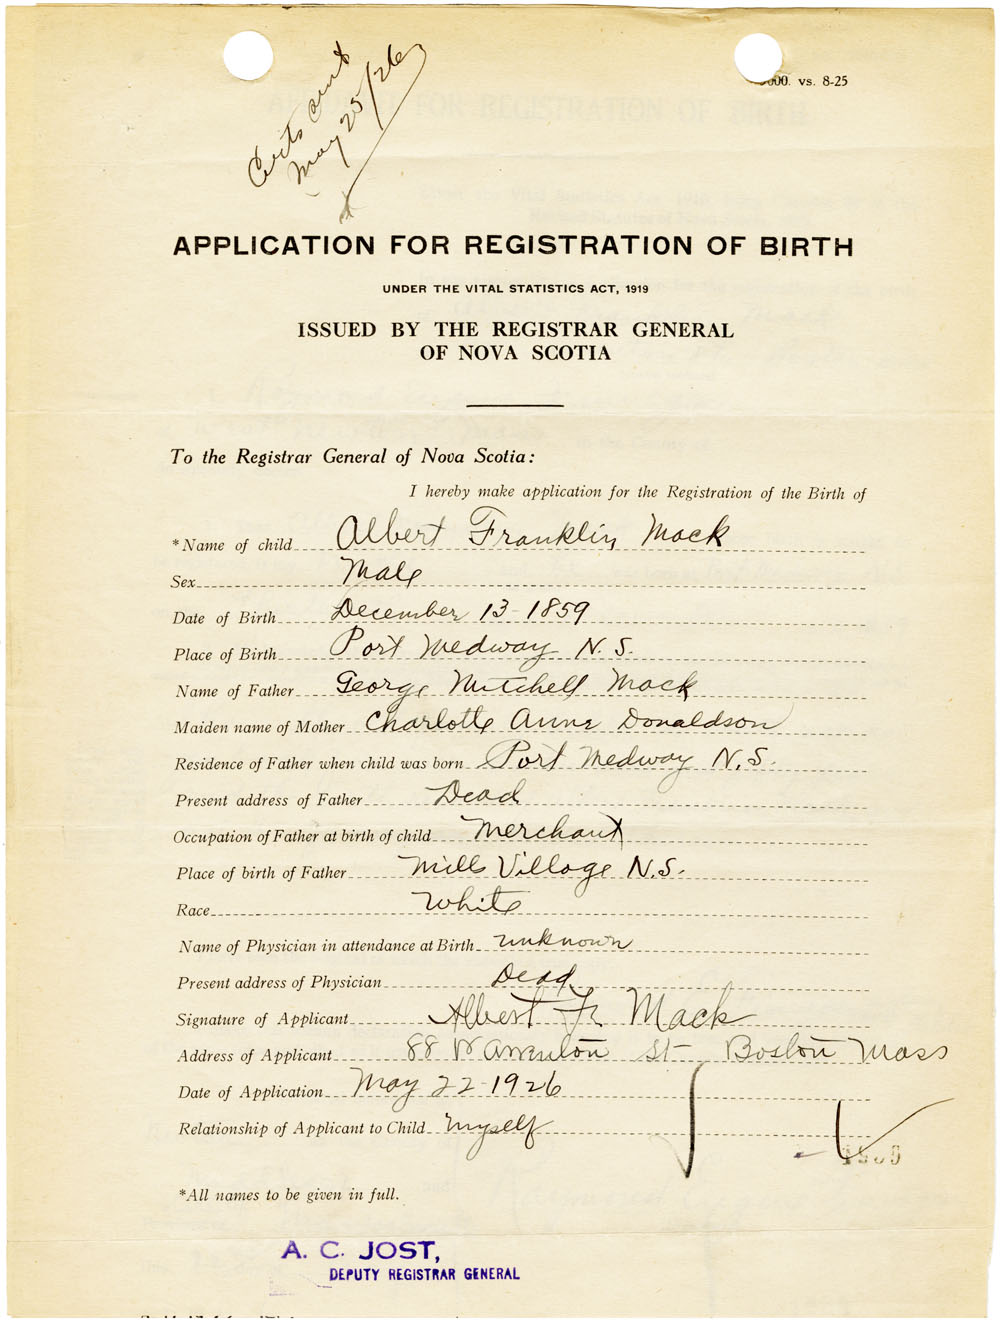 Certs sent
May 25/26
000. vs. 8-25
APPLICATION FOR REGISTRATION OF BIRTH
UNDER THE VITAL STATISTICS ACT, 1919
ISSUED BY THE REGISTRAR GENERAL
OF NOVA SCOTIA
To the Registrar General of Nova Scotia:
I hereby make application for the Registration of the Birth of
*Name of child Albert Franklin Mack
Sex Male
Date of Birth December 13-1859
Place of Birth Port Medway N.S.
Name of Father George Mitchell Mack
Maiden name of Mother Charlotte Anne Donaldson
Residence of Father when child was born Port Medway N.S.
Present address of Father Dead
Occupation of Father at birth of child Merchant
Place of birth of Father Mills Village N.S.
Race White
Name of Physician in attendance at Birth unknown
Present address of Physician Dead
Signature of Applicant Albert F. Mack
Address of Applicant 88 Warrenton St Boston Mass
Date of Application May 22-1926
Relationship of Applicant to Child myself
*All names to be given in full.
A. C. JOST,
DEPUTY REGISTRAR GENERAL